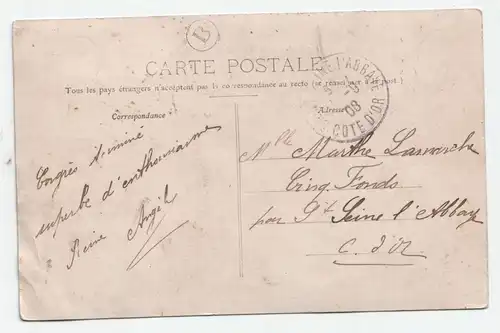 B
CARTE POSTALE
Tous les pays étrangers n'acceptent pas la correspondance au recto (se renseigner à la poste.)
Correspondance
Adresse
NE L'ABBAYE
08
COTE D'OR
Congrès terminé
superbe d'enthousiasme
Reine Angel
Mlle Marthe Lamarche
Cinq Fonds
par St Seine l'Abbaye
C. d'Or